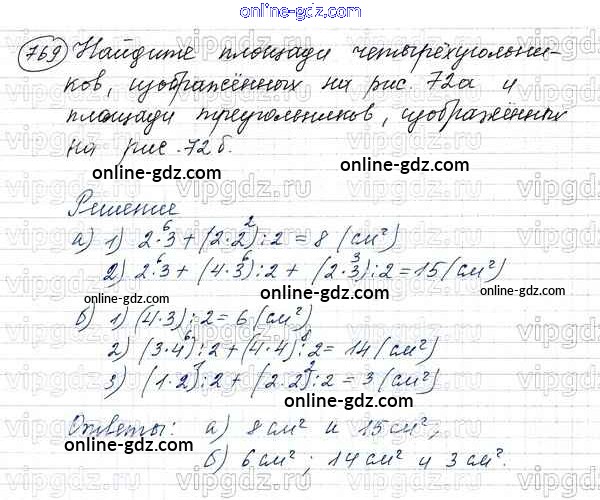 online-gdz.com
769 Найдите площади четырёхугольни-
ков, изображённых на рис. 72а и
площади треугольников, изображённых
на рис. 72б.
online-gdz.com
Решение
а) 1) 2·3 + (2·2):2 = 8 (см²)
6 2
2) 2·3 + (4·3):2 + (2·3):2 = 15 (см²)
6 6 3
online-gdz.com
online-gdz.com
б) 1) (4·3):2 = 6 (см²)
2) (3·4):2 + (4·4):2 = 14 (см²)
6 8
3) (1·2):2 + (2·2):2 = 3 (см²)
1 2
online-gdz.com
Ответы: а) 8 см² и 15 см²;
online-gdz.com
б) 6 см²; 14 см² и 3 см².
online-gdz.com